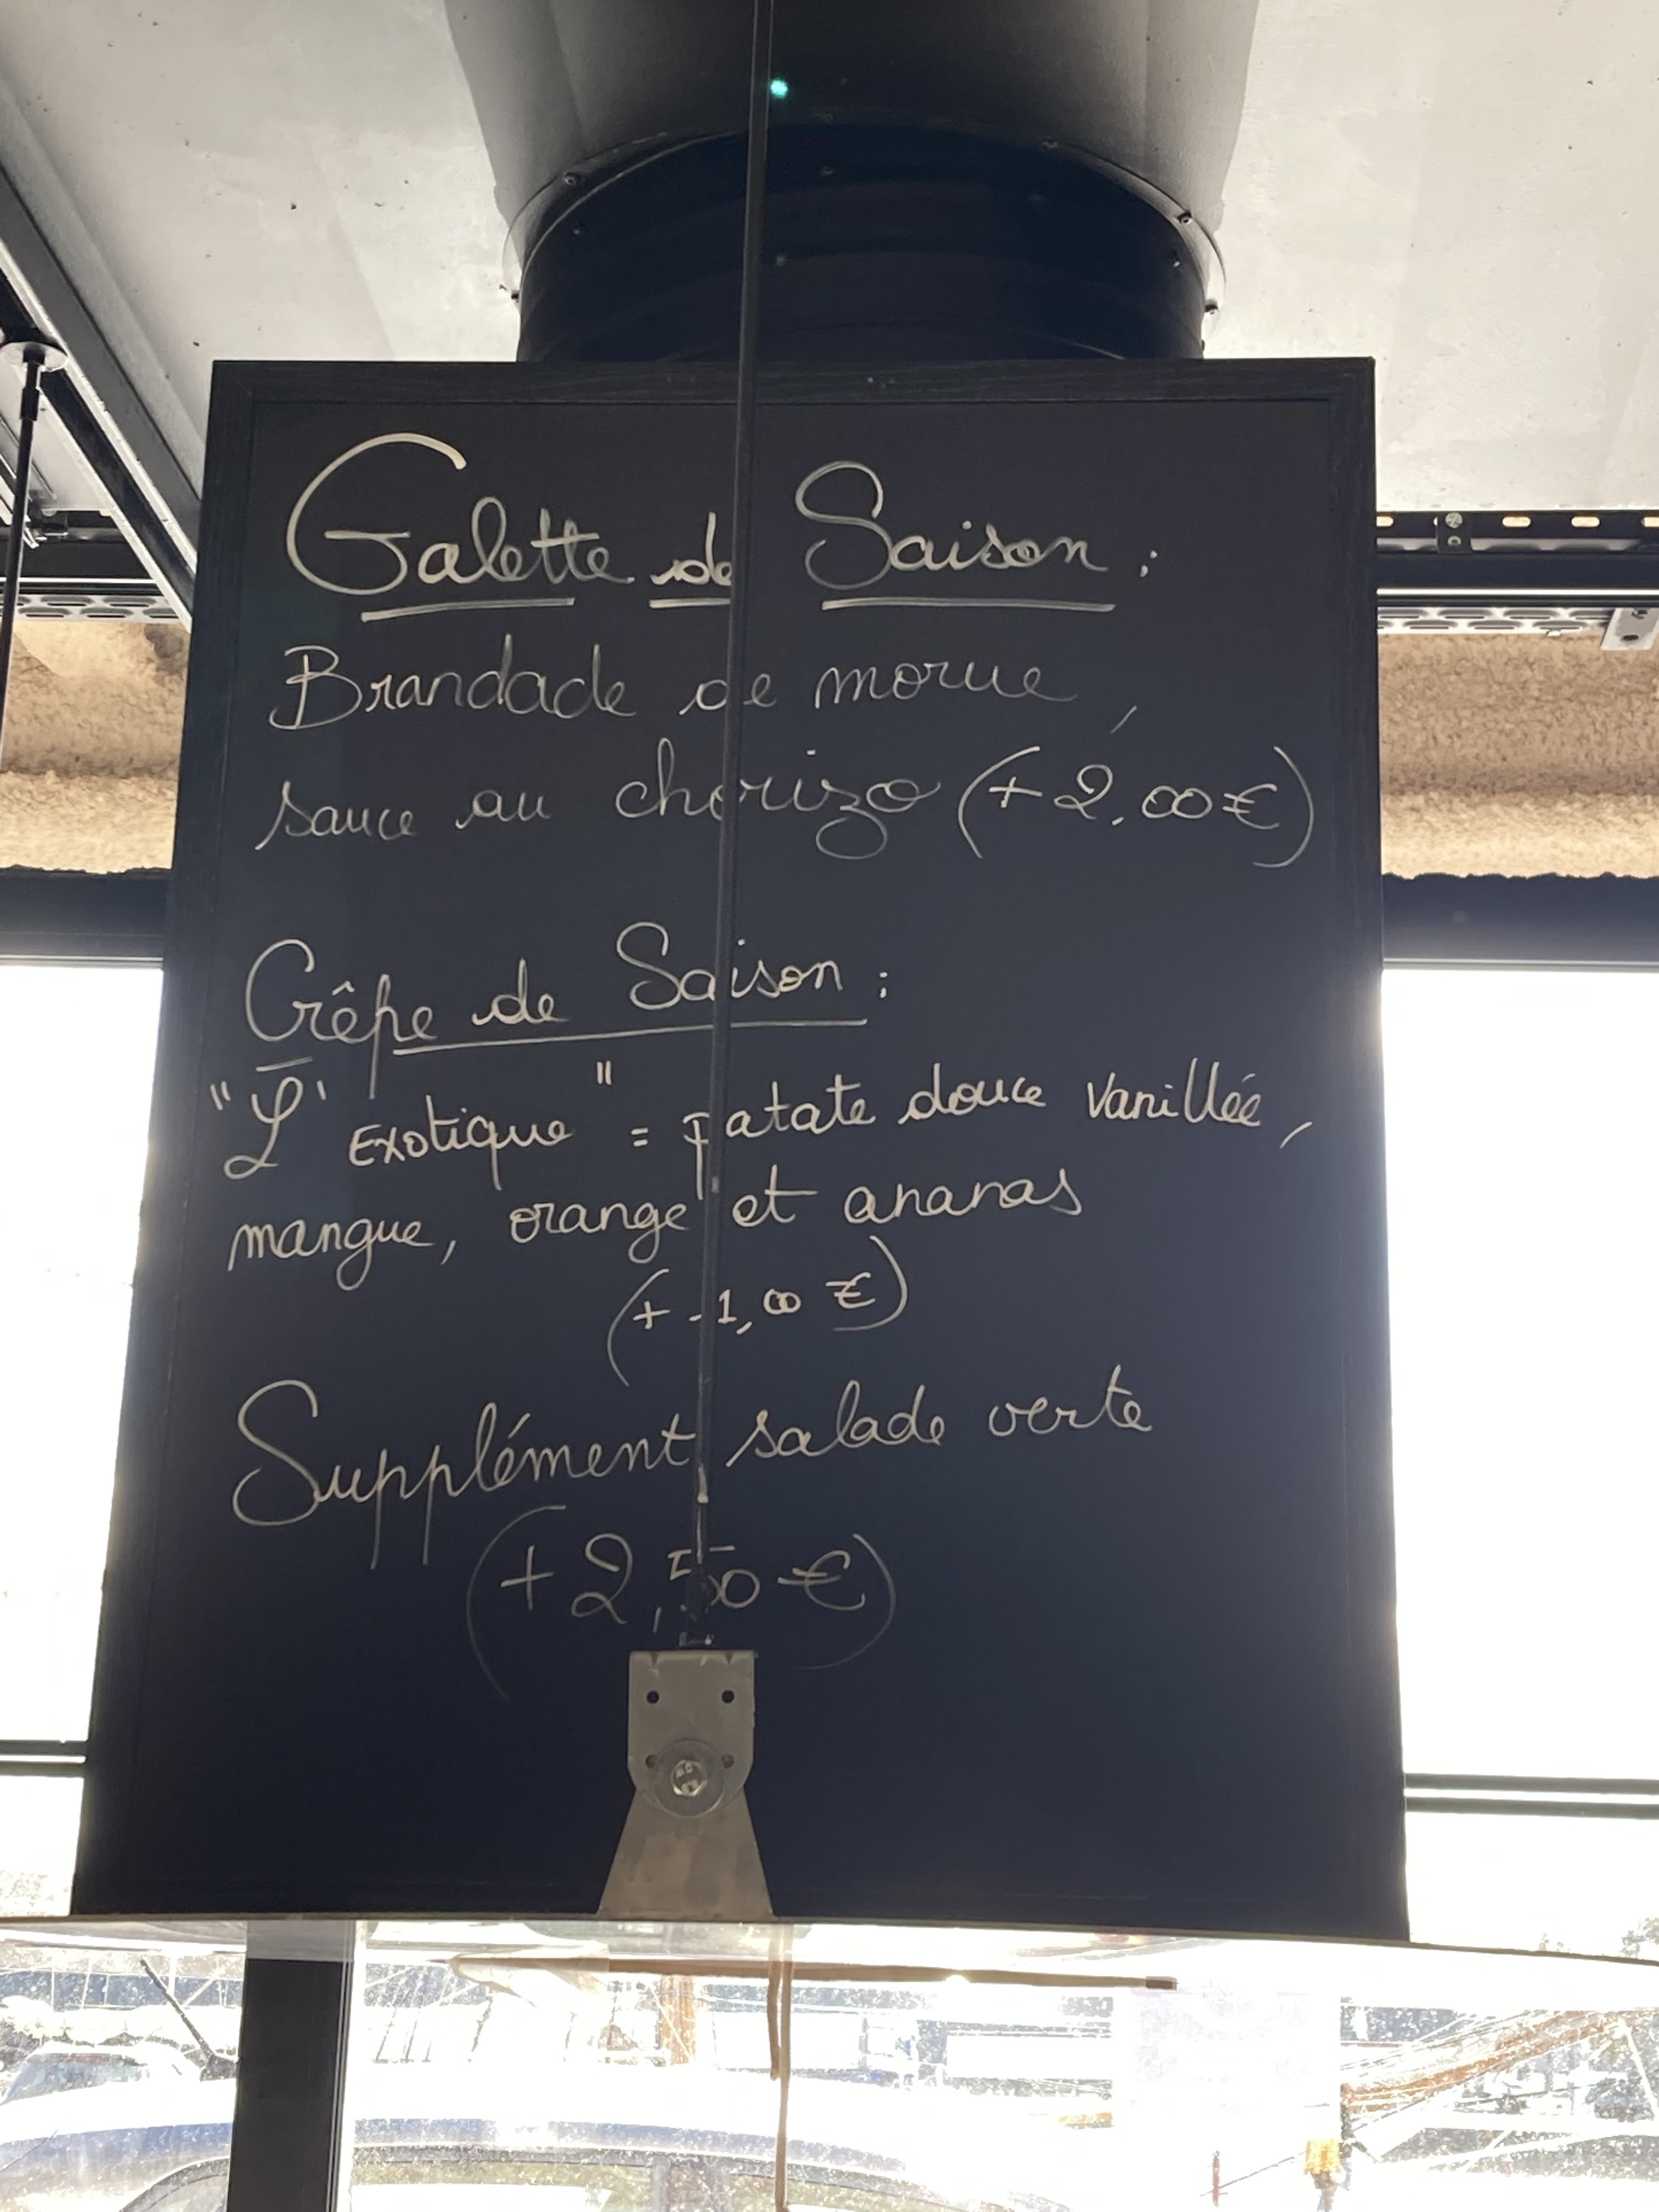 Galette de Saison :
Brandade de morue,
sauce au chorizo (+ 2,00 €)
Crêpe de Saison :
"L'Exotique" = patate douce vanillée,
mangue, orange et ananas
(+ 1,00 €)
Supplément salade verte
(+ 2,50 €)